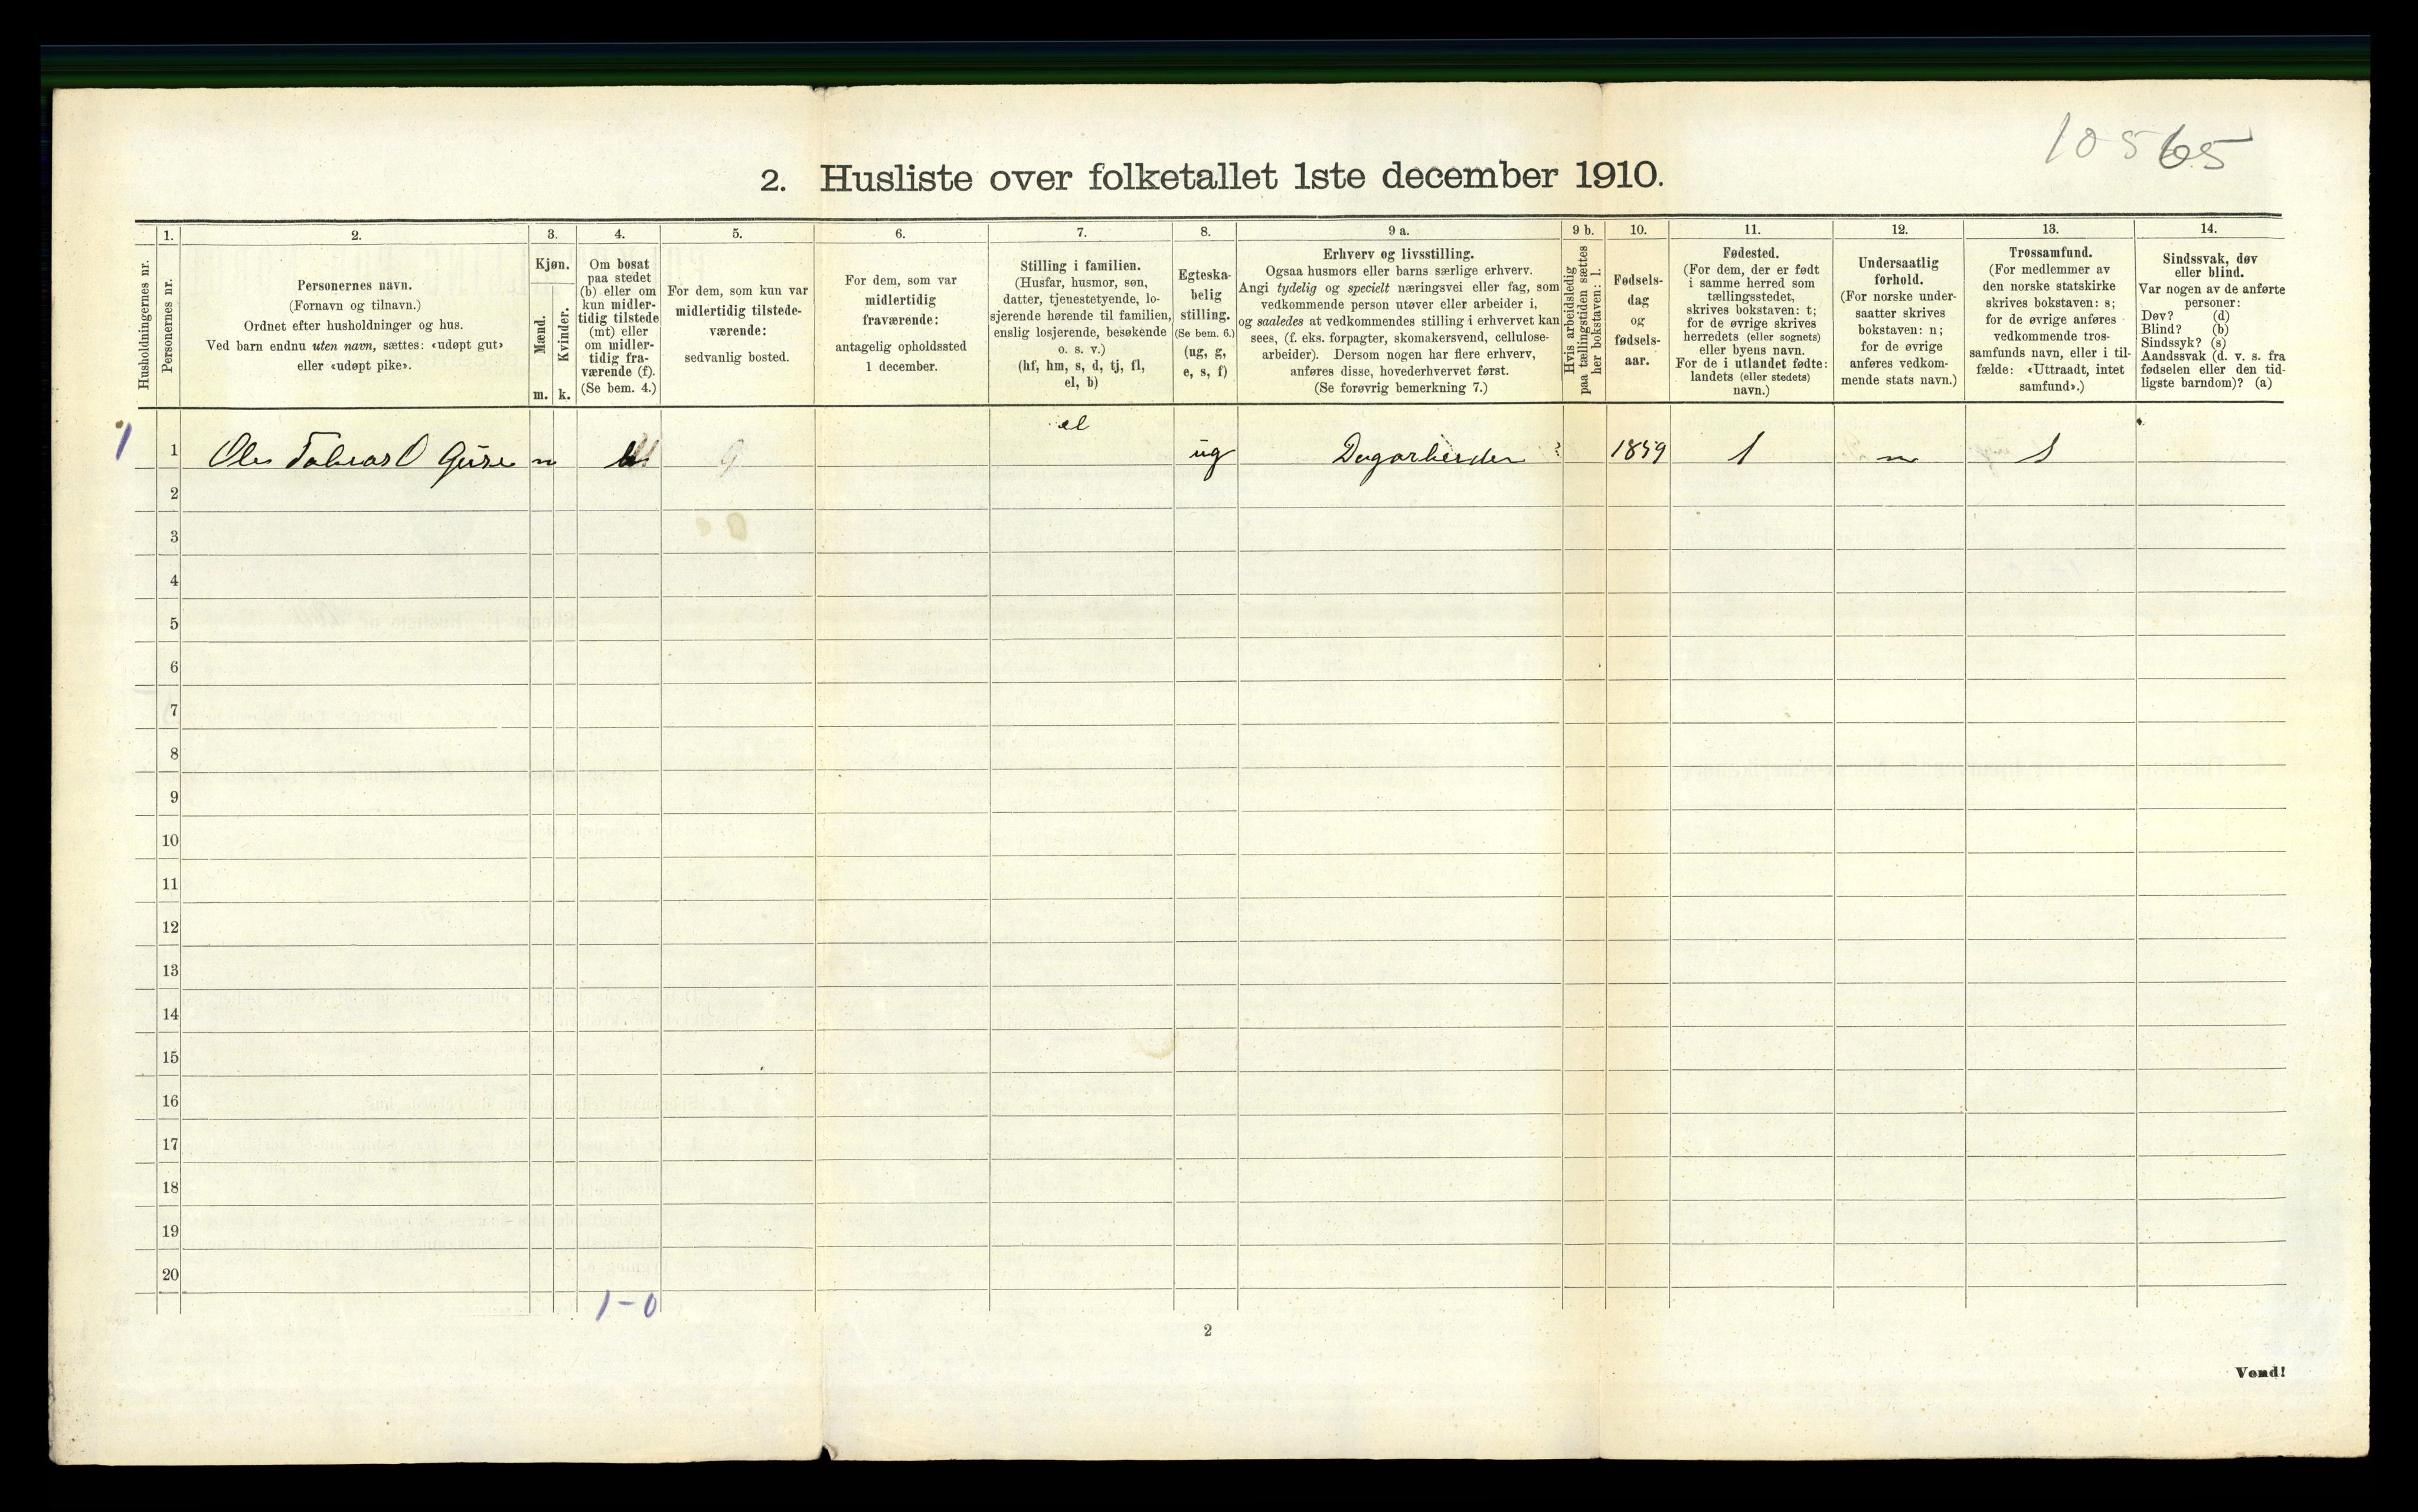 10565
2. Husliste over folketallet 1ste december 1910.
1. 2. 3. 4. 5. 6. 7. 8. 9 a. 9 b. 10. 11. 12. 13. 14.
Husholdningernes nr.
Personernes nr.
Personernes navn.
(Fornavn og tilnavn.)
Ordnet efter husholdninger og hus.
Ved barn endnu uten navn, sættes: «udøpt gut»
eller «udøpt pike».
Kjøn.
Mænd.
Kvinder.
m. k.
Om bosat
paa stedet
(b) eller om
kun midler-
tidig tilstede
(mt) eller
om midler-
tidig fra-
værende (f).
(Se bem. 4.)
For dem, som kun var
midlertidig tilstede-
værende:
sedvanlig bosted.
For dem, som var
midlertidig
fraværende:
antagelig opholdssted
1 december.
Stilling i familien.
(Husfar, husmor, søn,
datter, tjenestetyende, lo-
sjerende hørende til familien,
enslig losjerende, besøkende
o. s. v.)
(hf, hm, s, d, tj, fl,
el, b)
Egteska-
belig
stilling.
(Se bem. 6.)
(ug, g,
e, s, f)
Erhverv og livsstilling.
Ogsaa husmors eller barns særlige erhverv.
Angi tydelig og specielt næringsvei eller fag, som
vedkommende person utøver eller arbeider i,
og saaledes at vedkommendes stilling i erhvervet kan
sees, (f. eks. forpagter, skomakersvend, cellulose-
arbeider). Dersom nogen har flere erhverv,
anføres disse, hovederhvervet først.
(Se forøvrig bemerkning 7.)
Hvis arbeidsledig
paa tællingstiden sættes
her bokstaven: l.
Fødsels-
dag
og
fødsels-
aar.
Fødested.
(For dem, der er født
i samme herred som
tællingsstedet,
skrives bokstaven: t;
for de øvrige skrives
herredets (eller sognets)
eller byens navn.
For de i utlandet fødte:
landets (eller stedets)
navn.)
Undersaatlig
forhold.
(For norske under-
saatter skrives
bokstaven: n;
for de øvrige
anføres vedkom-
mende stats navn.)
Trossamfund.
(For medlemmer av
den norske statskirke
skrives bokstaven: s;
for de øvrige anføres
vedkommende tros-
samfunds navn, eller i til-
fælde: «Uttraadt, intet
samfund».)
Sindssvak, døv
eller blind.
Var nogen av de anførte
personer:
Døv? (d)
Blind? (b)
Sindssyk? (s)
Aandssvak (d. v. s. fra
fødselen eller den tid-
ligste barndom)? (a)
el
1 1 Ole ug 1859 n s
2
3
4
5
6
7
8
9
10
11
12
13
14
15
16
17
18
19
20
1-0
2
Vend!